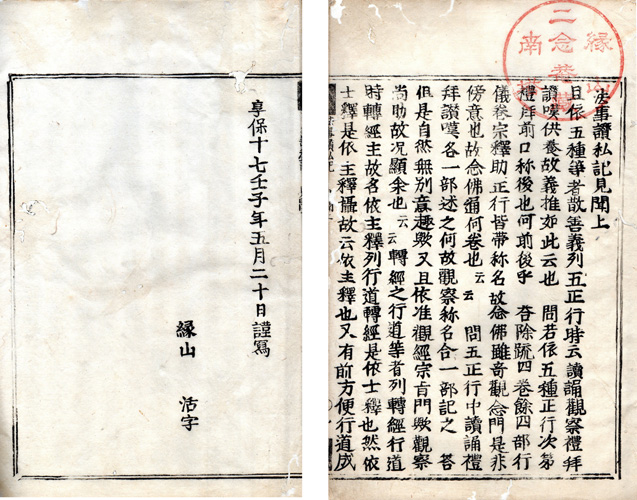 法事讃私記見聞上
且依五種等者散善義列五正行時云讀誦觀察禮拜
讃嘆供養故義推如此云也 問若依五種正行次第
禮拜前口称後也何前後乎 荅除疏四卷餘四部行
儀卷宗釋助正行皆帶称名故念佛雖奇觀念門是非
傍意也故念佛通何卷也云云 問五正行中讀誦禮
拜讃嘆各一部述之何故觀察称名合一部記之 荅
但是自然無別意趣歟又且依准觀經宗肯門歟觀察
尚助故况顯余也云云 轉經之行道等者列轉經行道
時轉經主故名依主釋列行道轉經是依士釋也然依
士釋是依主釋攝故云依主釋也又有前方便行道成
縁山
二念菴藏
南
享保十七壬子年五月二十日謹寫
縁山 活字